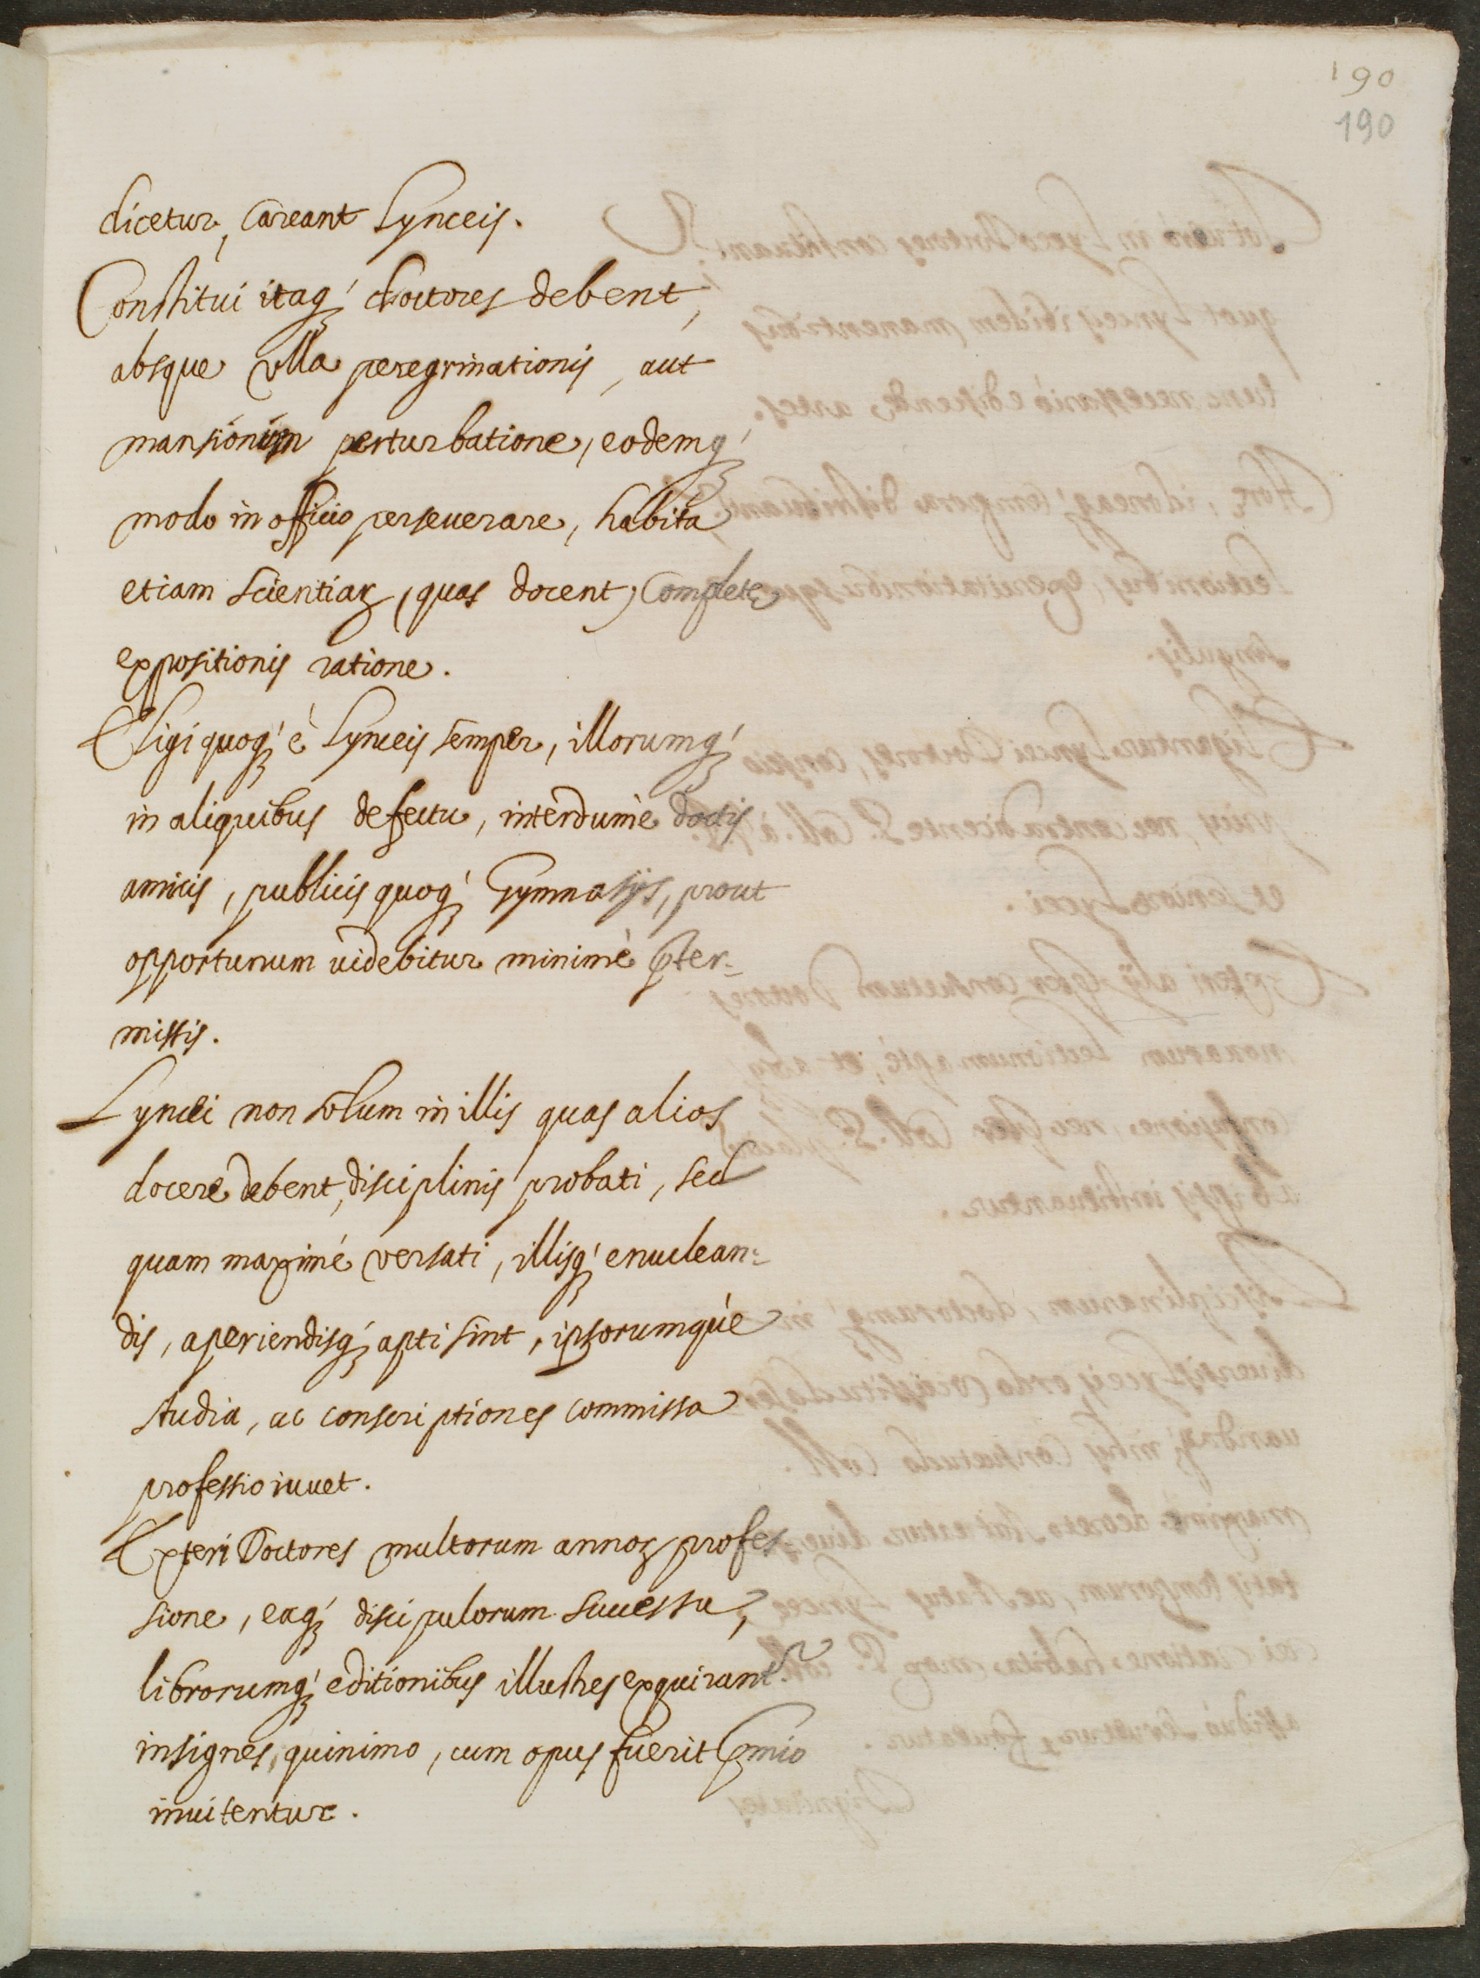 190
190
dicetur, careant Lynceis.
Constitui itaq́ꝫ doctores debent,
absque ulla peregrinationis, aut
mansionum perturbatione, eodemq́ꝫ
modo in officio perseuerare, habita
etiam scientiaꝝ, quas docent, complete
expositionis ratione.
Eligi quoq́ꝫ è Lynceis semper, illorumq́ꝫ
in aliquibus defectu, interdumè doctis
amicis, publicis quoq́ꝫ Gymnasijs, prout
opportunum uidebitur minimè p̃ter-
missis.
Lyncei non solum in illis quas alios
docere debent, disciplinis probati, sed
quam maximé versati, illisq́ꝫ enuclean-
dis, aperiendisq́ꝫ apti sint, ipsorumque
studia, ac conscriptiones commissa
professio iuuet.
Exteri Doctores multorum annoꝝ profes
sione, eaq́ꝫ discipulorum successu,
librorumq́ꝫ editionibus illustres exquirant.ʳ
insignes, quinimo, cum opus fuerit p̃mio
inuitentur.